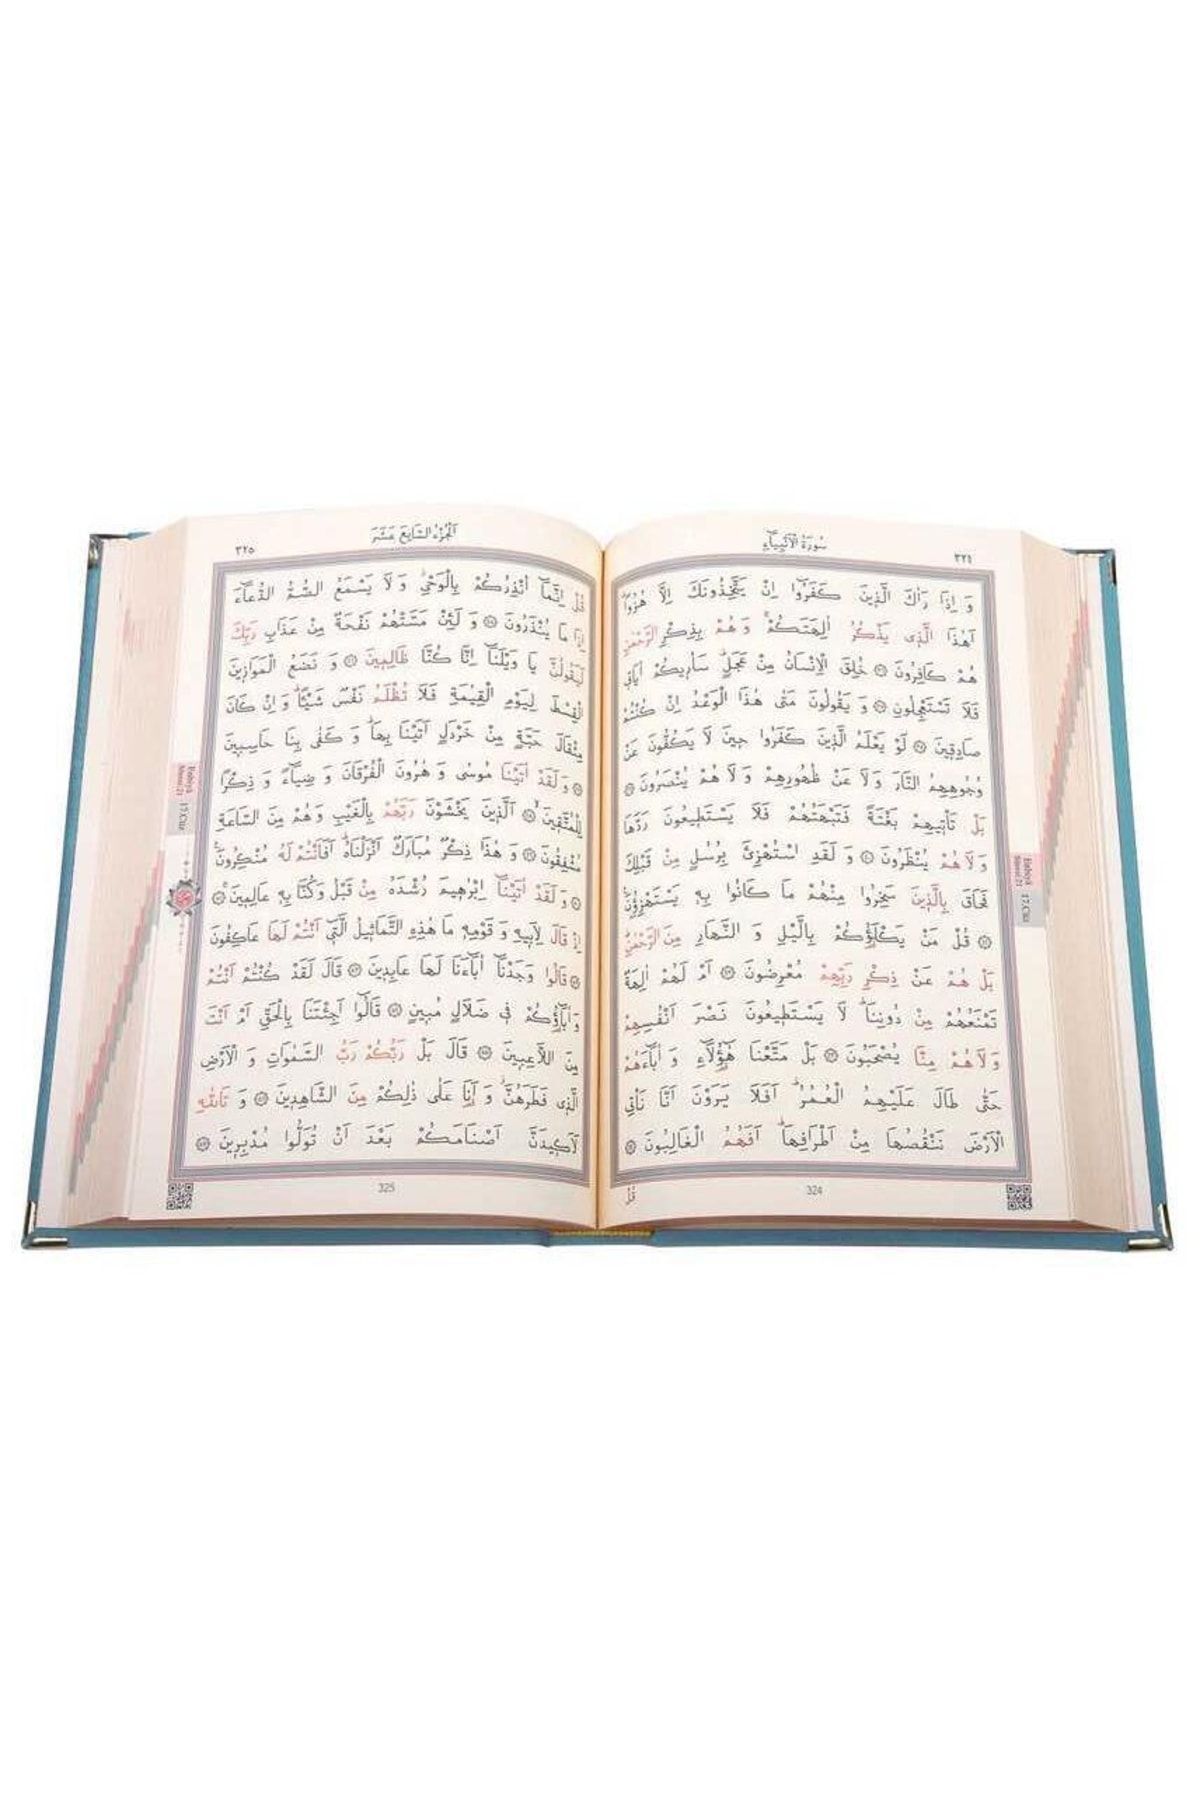 سُورَةُ الْاَنْبِيَاءِ
٣٢٤
وَ اِذَا رَاٰكَ الَّذٖينَ كَفَرُٓوا اِنْ يَتَّخِذُونَكَ اِلَّا هُزُواًؕ
اَهٰذَا الَّذٖي يَذْكُرُ اٰلِهَتَكُمْۚ وَ هُمْ بِذِكْرِ الرَّحْمٰنِ
هُمْ كَافِرُونَ ۝ خُلِقَ الْاِنْسَانُ مِنْ عَجَلٍؕ سَاُرٖيكُمْ اٰيَاتٖي
فَلَا تَسْتَعْجِلُونِ ۝ وَ يَقُولُونَ مَتٰى هٰذَا الْوَعْدُ اِنْ كُنْتُمْ
صَادِقٖينَ ۝ لَوْ يَعْلَمُ الَّذٖينَ كَفَرُوا حٖينَ لَا يَكُفُّونَ عَنْ
وُجُوهِهِمُ النَّارَ وَ لَا عَنْ ظُهُورِهِمْ وَ لَا هُمْ يُنْصَرُونَ ۝
بَلْ تَأْتٖيهِمْ بَغْتَةً فَتَبْهَتُهُمْ فَلَا يَسْتَطٖيعُونَ رَدَّهَا
وَ لَا هُمْ يُنْظَرُونَ ۝ وَ لَقَدِ اسْتُهْزِئَ بِرُسُلٍ مِنْ قَبْلِكَ
فَحَاقَ بِالَّذٖينَ سَخِرُوا مِنْهُمْ مَا كَانُوا بِهٖ يَسْتَهْزِؤُنَ
۝ قُلْ مَنْ يَكْلَؤُكُمْ بِالَّيْلِ وَ النَّهَارِ مِنَ الرَّحْمٰنِؕ
بَلْ هُمْ عَنْ ذِكْرِ رَبِّهِمْ مُعْرِضُونَ ۝ اَمْ لَهُمْ اٰلِهَةٌ
تَمْنَعُهُمْ مِنْ دُونِنَاؕ لَا يَسْتَطٖيعُونَ نَصْرَ اَنْفُسِهِمْ
وَ لَا هُمْ مِنَّا يُصْحَبُونَ ۝ بَلْ مَتَّعْنَا هٰٓؤُلَٓاءِ وَ اٰبَٓاءَهُمْ
حَتّٰى طَالَ عَلَيْهِمُ الْعُمُرُؕ اَفَلَا يَرَوْنَ اَنَّا نَأْتِي
الْاَرْضَ نَنْقُصُهَا مِنْ اَطْرَافِهَاؕ اَفَهُمُ الْغَالِبُونَ ۝
Enbiyâ
Sûresi 21
17. Cüz
324
قُلْ
اَلْجُزْءُ السَّابِعَ عَشَرَ
٣٢٥
قُلْ اِنَّمَٓا اُنْذِرُكُمْ بِالْوَحْيِؗ وَ لَا يَسْمَعُ الصُّمُّ الدُّعَٓاءَ
اِذَا مَا يُنْذَرُونَ ۝ وَ لَئِنْ مَسَّتْهُمْ نَفْحَةٌ مِنْ عَذَابِ رَبِّكَ
لَيَقُولُنَّ يَا وَيْلَنَٓا اِنَّا كُنَّا ظَالِمٖينَ ۝ وَ نَضَعُ الْمَوَازٖينَ
الْقِسْطَ لِيَوْمِ الْقِيٰمَةِ فَلَا تُظْلَمُ نَفْسٌ شَيْـٔاًؕ وَ اِنْ كَانَ
مِثْقَالَ حَبَّةٍ مِنْ خَرْدَلٍ اَتَيْنَا بِهَاؕ وَ كَفٰى بِنَا حَاسِبٖينَ
۝ وَ لَقَدْ اٰتَيْنَا مُوسٰى وَ هٰرُونَ الْفُرْقَانَ وَ ضِيَٓاءً وَ ذِكْراً
لِلْمُتَّقٖينَۙ ۝ اَلَّذٖينَ يَخْشَوْنَ رَبَّهُمْ بِالْغَيْبِ وَ هُمْ مِنَ السَّاعَةِ
مُشْفِقُونَ ۝ وَ هٰذَا ذِكْرٌ مُبَارَكٌ اَنْزَلْنَاهُؕ اَفَاَنْتُمْ لَهُ مُنْكِرُونَ
۝ وَ لَقَدْ اٰتَيْنَٓا اِبْرٰهٖيمَ رُشْدَهُ مِنْ قَبْلُ وَ كُنَّا بِهٖ عَالِمٖينَۚ ۝
اِذْ قَالَ لِاَبٖيهِ وَ قَوْمِهٖ مَا هٰذِهِ التَّمَاثٖيلُ الَّتٖٓي اَنْتُمْ لَهَا عَاكِفُونَ
۝ قَالُوا وَجَدْنَٓا اٰبَٓاءَنَا لَهَا عَابِدٖينَ ۝ قَالَ لَقَدْ كُنْتُمْ اَنْتُمْ
وَ اٰبَٓاؤُكُمْ فٖي ضَلَالٍ مُبٖينٍ ۝ قَالُٓوا اَجِئْتَنَا بِالْحَقِّ اَمْ اَنْتَ
مِنَ اللَّاعِبٖينَ ۝ قَالَ بَلْ رَبُّكُمْ رَبُّ السَّمٰوَاتِ وَ الْاَرْضِ
الَّذٖي فَطَرَهُنَّؗ وَ اَنَا عَلٰى ذٰلِكُمْ مِنَ الشَّاهِدٖينَ ۝ وَ تَاللّٰهِ
لَاَكٖيدَنَّ اَصْنَامَكُمْ بَعْدَ اَنْ تُوَلُّوا مُدْبِرٖينَ ۝
Enbiyâ
Sûresi 21
17. Cüz
325